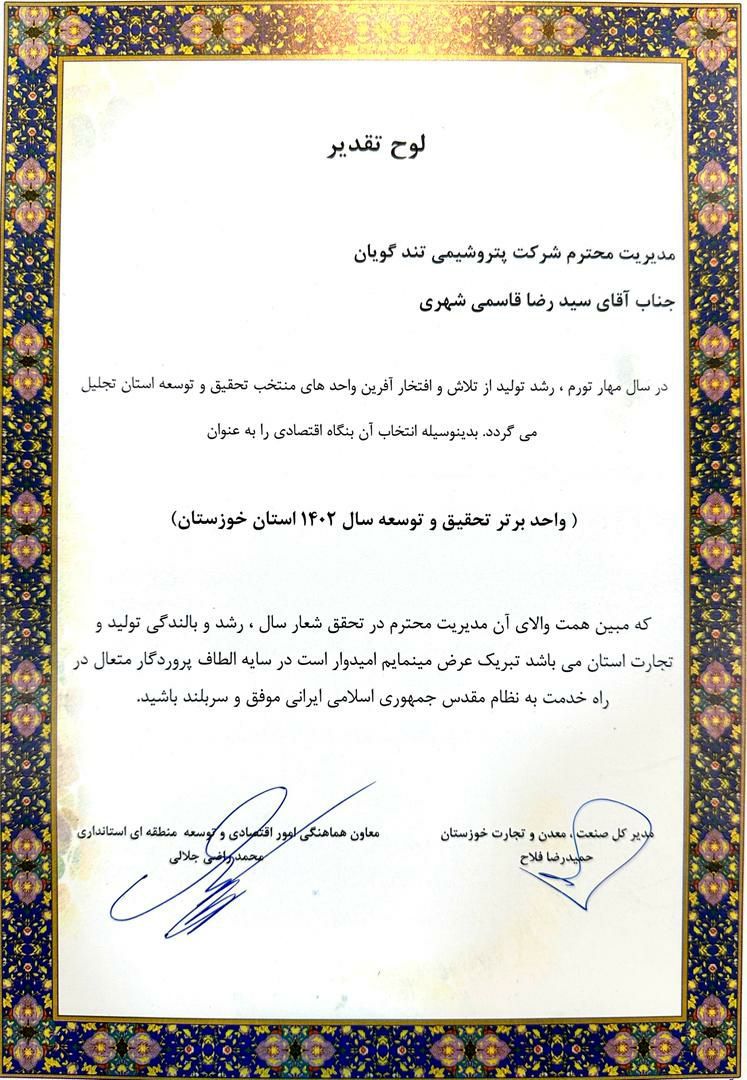 لوح تقدیر
مدیریت محترم شرکت پتروشیمی تند گویان
جناب آقای سید رضا قاسمی شهری
در سال مهار تورم ، رشد تولید از تلاش و افتخار آفرین واحد های منتخب تحقیق و توسعه استان تجلیل
می گردد. بدینوسیله انتخاب آن بنگاه اقتصادی را به عنوان
( واحد برتر تحقیق و توسعه سال ۱۴۰۲ استان خوزستان)
که مبین همت والای آن مدیریت محترم در تحقق شعار سال ، رشد و بالندگی تولید و
تجارت استان می باشد تبریک عرض مینمایم امیدوار است در سایه الطاف پروردگار متعال در
راه خدمت به نظام مقدس جمهوری اسلامی ایرانی موفق و سربلند باشید.
مدیر کل صنعت ، معدن و تجارت خوزستان
حمیدرضا فلاح
معاون هماهنگی امور اقتصادی و توسعه منطقه ای استانداری
محمد راضی جلالی